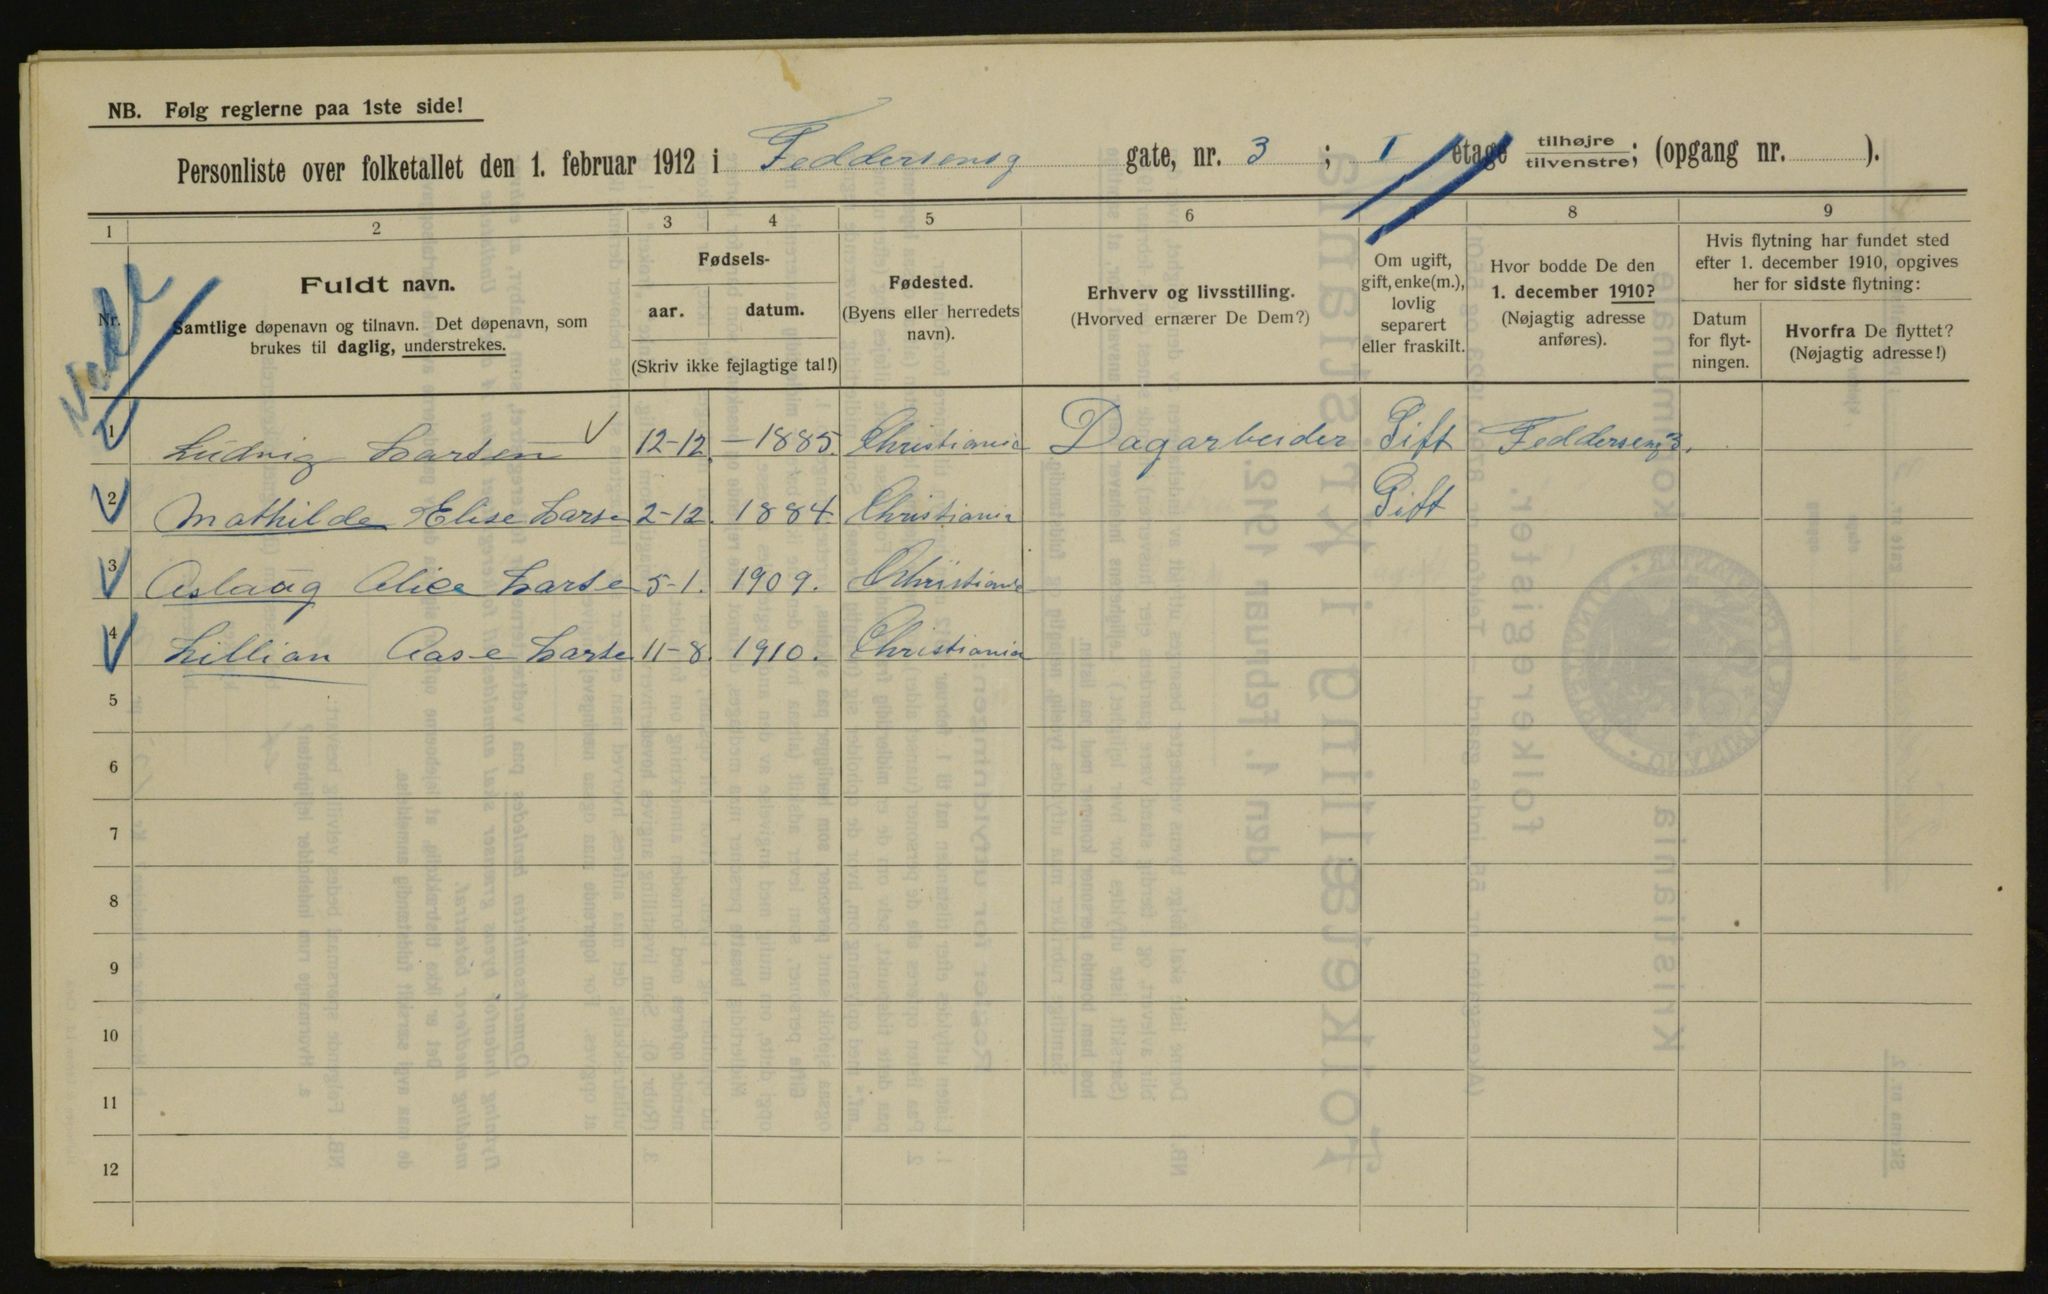 NB. Følg reglerne paa 1ste side!
Personliste over folketallet den 1. februar 1912 i Feddersensg gate, nr. 3 ; I etage tilhøjre/tilvenstre; (opgang nr. ).
1 2 3 4 5 6 8 9
Nr.
Fuldt navn.
Samtlige døpenavn og tilnavn. Det døpenavn, som
brukes til daglig, understrekes.
Fødsels-
aar. datum.
(Skriv ikke fejlagtige tal!)
Fødested.
(Byens eller herredets
navn).
Erhverv og livsstilling.
(Hvorved ernærer De Dem?)
Om ugift,
gift, enke(m.),
lovlig
separert
eller fraskilt.
Hvor bodde De den
1. december 1910?
(Nøjagtig adresse
anføres).
Hvis flytning har fundet sted
efter 1. december 1910, opgives
her for sidste flytning:
Datum
for flyt-
ningen.
Hvorfra De flyttet?
(Nøjagtig adresse!)
1 Ludvig Larsen 12-12. – 1885. Christiania Dagarbeider Gift Feddersensg 3.
2 Mathilde Elise Larse 2-12. 1884. Christiania Gift
3 Aslaug Alice Larse 5-1. 1909. Christiania
4 Lillian Aase Larse 11-8. 1910. Christiania
5
6
7
8
9
10
11
12